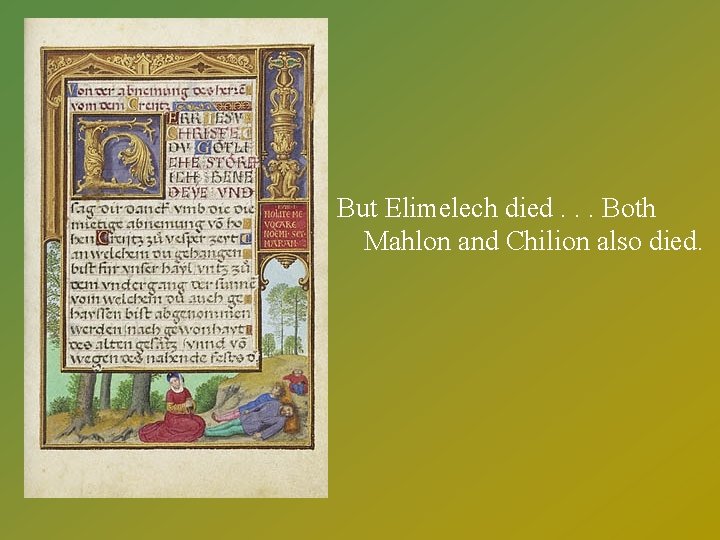 Von der abnemung des herrē
vom dem Creütz
HERR IESV
CHRISTE
DV GÖTLI
CHE STÖRE
ICH BENE
DEYE VND
sag dir danck vmb die die
mietige abnemung vō ho
hen Creütz zů vesper zeyt
an welchem du gehangen
bist für vnser hayl vntz zů
dem vndergang der sunnē
vom welchem du auch ge
hayssen bist abgenommen
werden nach gewonhayt
des alten gesätz vnnd vō
wegen des nahende fests d
NOLITE ME
VOCARE
NOEMI SET
MARAN
But Elimelech died . . . Both
Mahlon and Chilion also died.